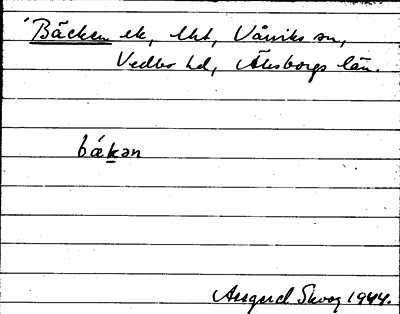 Bäcken ek, lht, Vårviks sn,
Vedbo hd, Älvsborgs län.
bǽkən
Assgerd Skoog 1944.